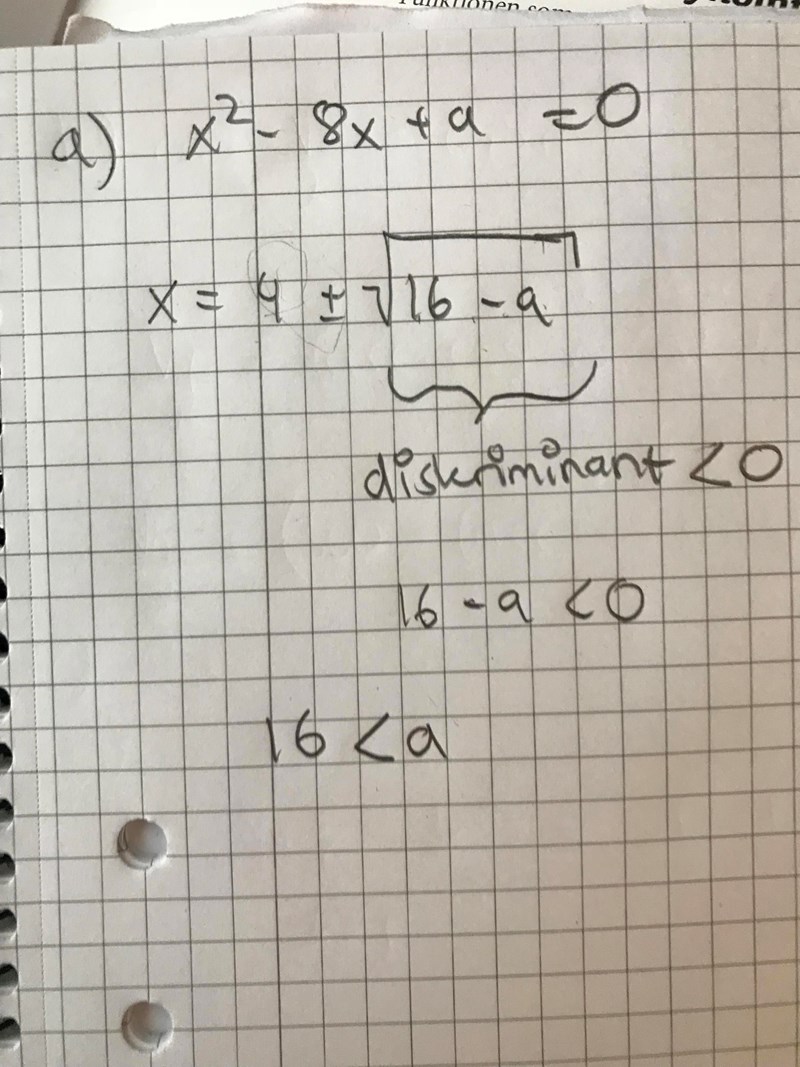 Funktionen som
a) x² - 8x + a = 0
x = 4 ± √16 - a
diskriminant < 0
16 - a < 0
16 < a